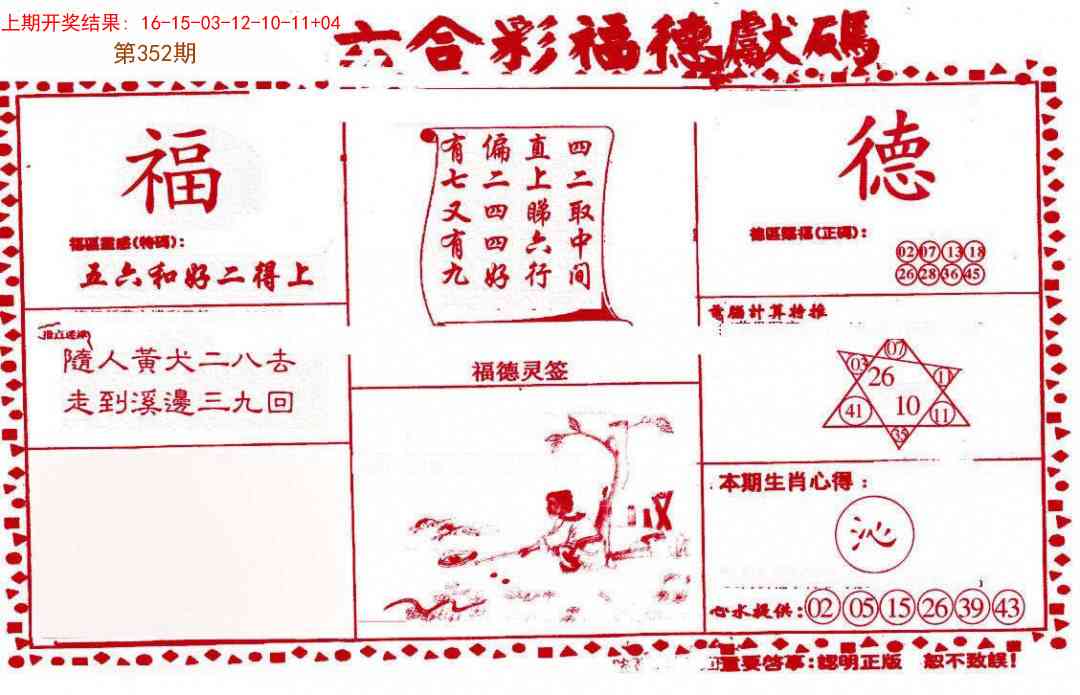 上期开奖结果：16-15-03-12-10-11+04
第352期
六合彩福德獻碼
福
福區靈感(特碼)：
五六和好二得上
隨人黃犬二八去
走到溪邊三九回
四二取中间
直上睇六行
偏二四四好
有七又有九
福德灵签
德
德區賜福(正碼)：
02 07 13 18
26 28 36 45
電腦計算特推
07
03 26
41 10 11
35
本期生肖心得：
沁
心水提供：02 05 15 26 39 43
重要啓事：認明正版 恕不致誤！